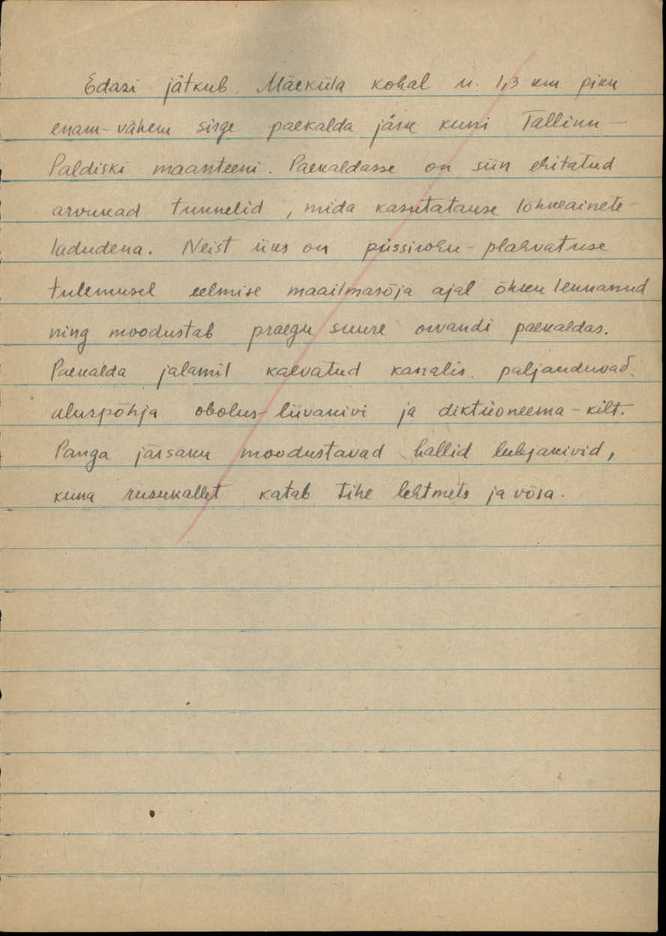 Edasi jätkub Mäeküla kohal u. 1,3 km pikk
enam-vähem sirge paekalda järsk kuni Tallinn-
Paldiski maanteeni. Paekaldasse on siin ehitatud
arvukad tunnelid, mida kasutatakse lõhkeainete-
ladudena. Neist üks on püssirohu-plahvatuse
tulemusel eelmise maailmasõja ajal õhku lennanud
ning moodustab praegu suure orvandi paekaldas.
Paekalda jalamil kaevatud kanalis paljanduvad
aluspõhja obolus-liivakivi ja diktüoneema-kilt.
Panga järsaku moodustavad hallid lubjakivid,
kuna rusukallet katab tihe lehtmets ja võsa.